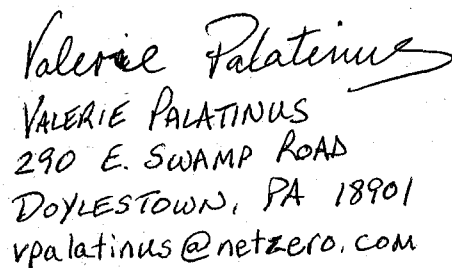 Valerie Palatinus
VALERIE PALATINUS
290 E. SWAMP ROAD
DOYLESTOWN, PA 18901
vpalatinus@netzero.com